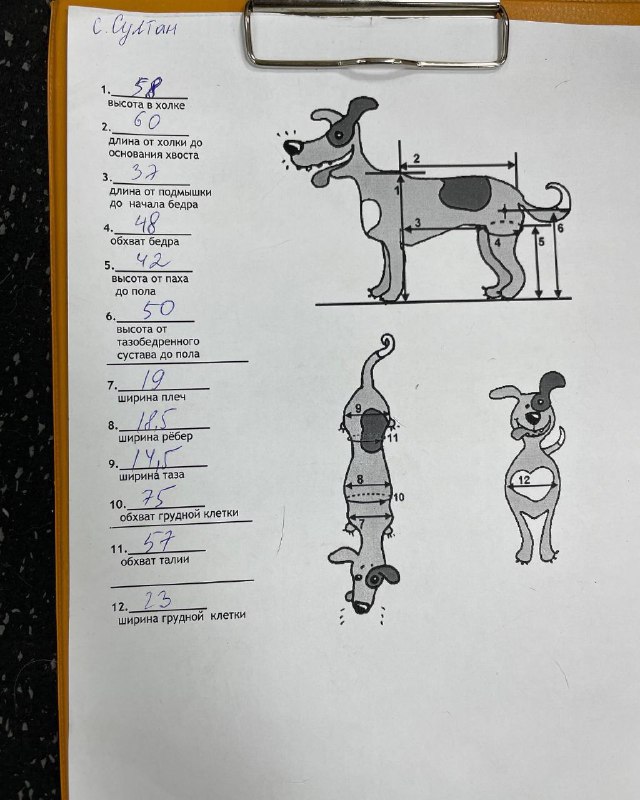 с. Султан
1. 58
высота в холке
2. 60
длина от холки до
основания хвоста
3. 37
длина от подмышки
до начала бедра
4. 48
обхват бедра
5. 42
высота от паха
до пола
6. 50
высота от
тазобедренного
сустава до пола
7. 19
ширина плеч
8. 18,5
ширина рёбер
9. 14,5
ширина таза
10. 75
обхват грудной клетки
11. 57
обхват талии
12. 23
ширина грудной клетки
2
1
3
4
5
6
9
11
8
10
7
12